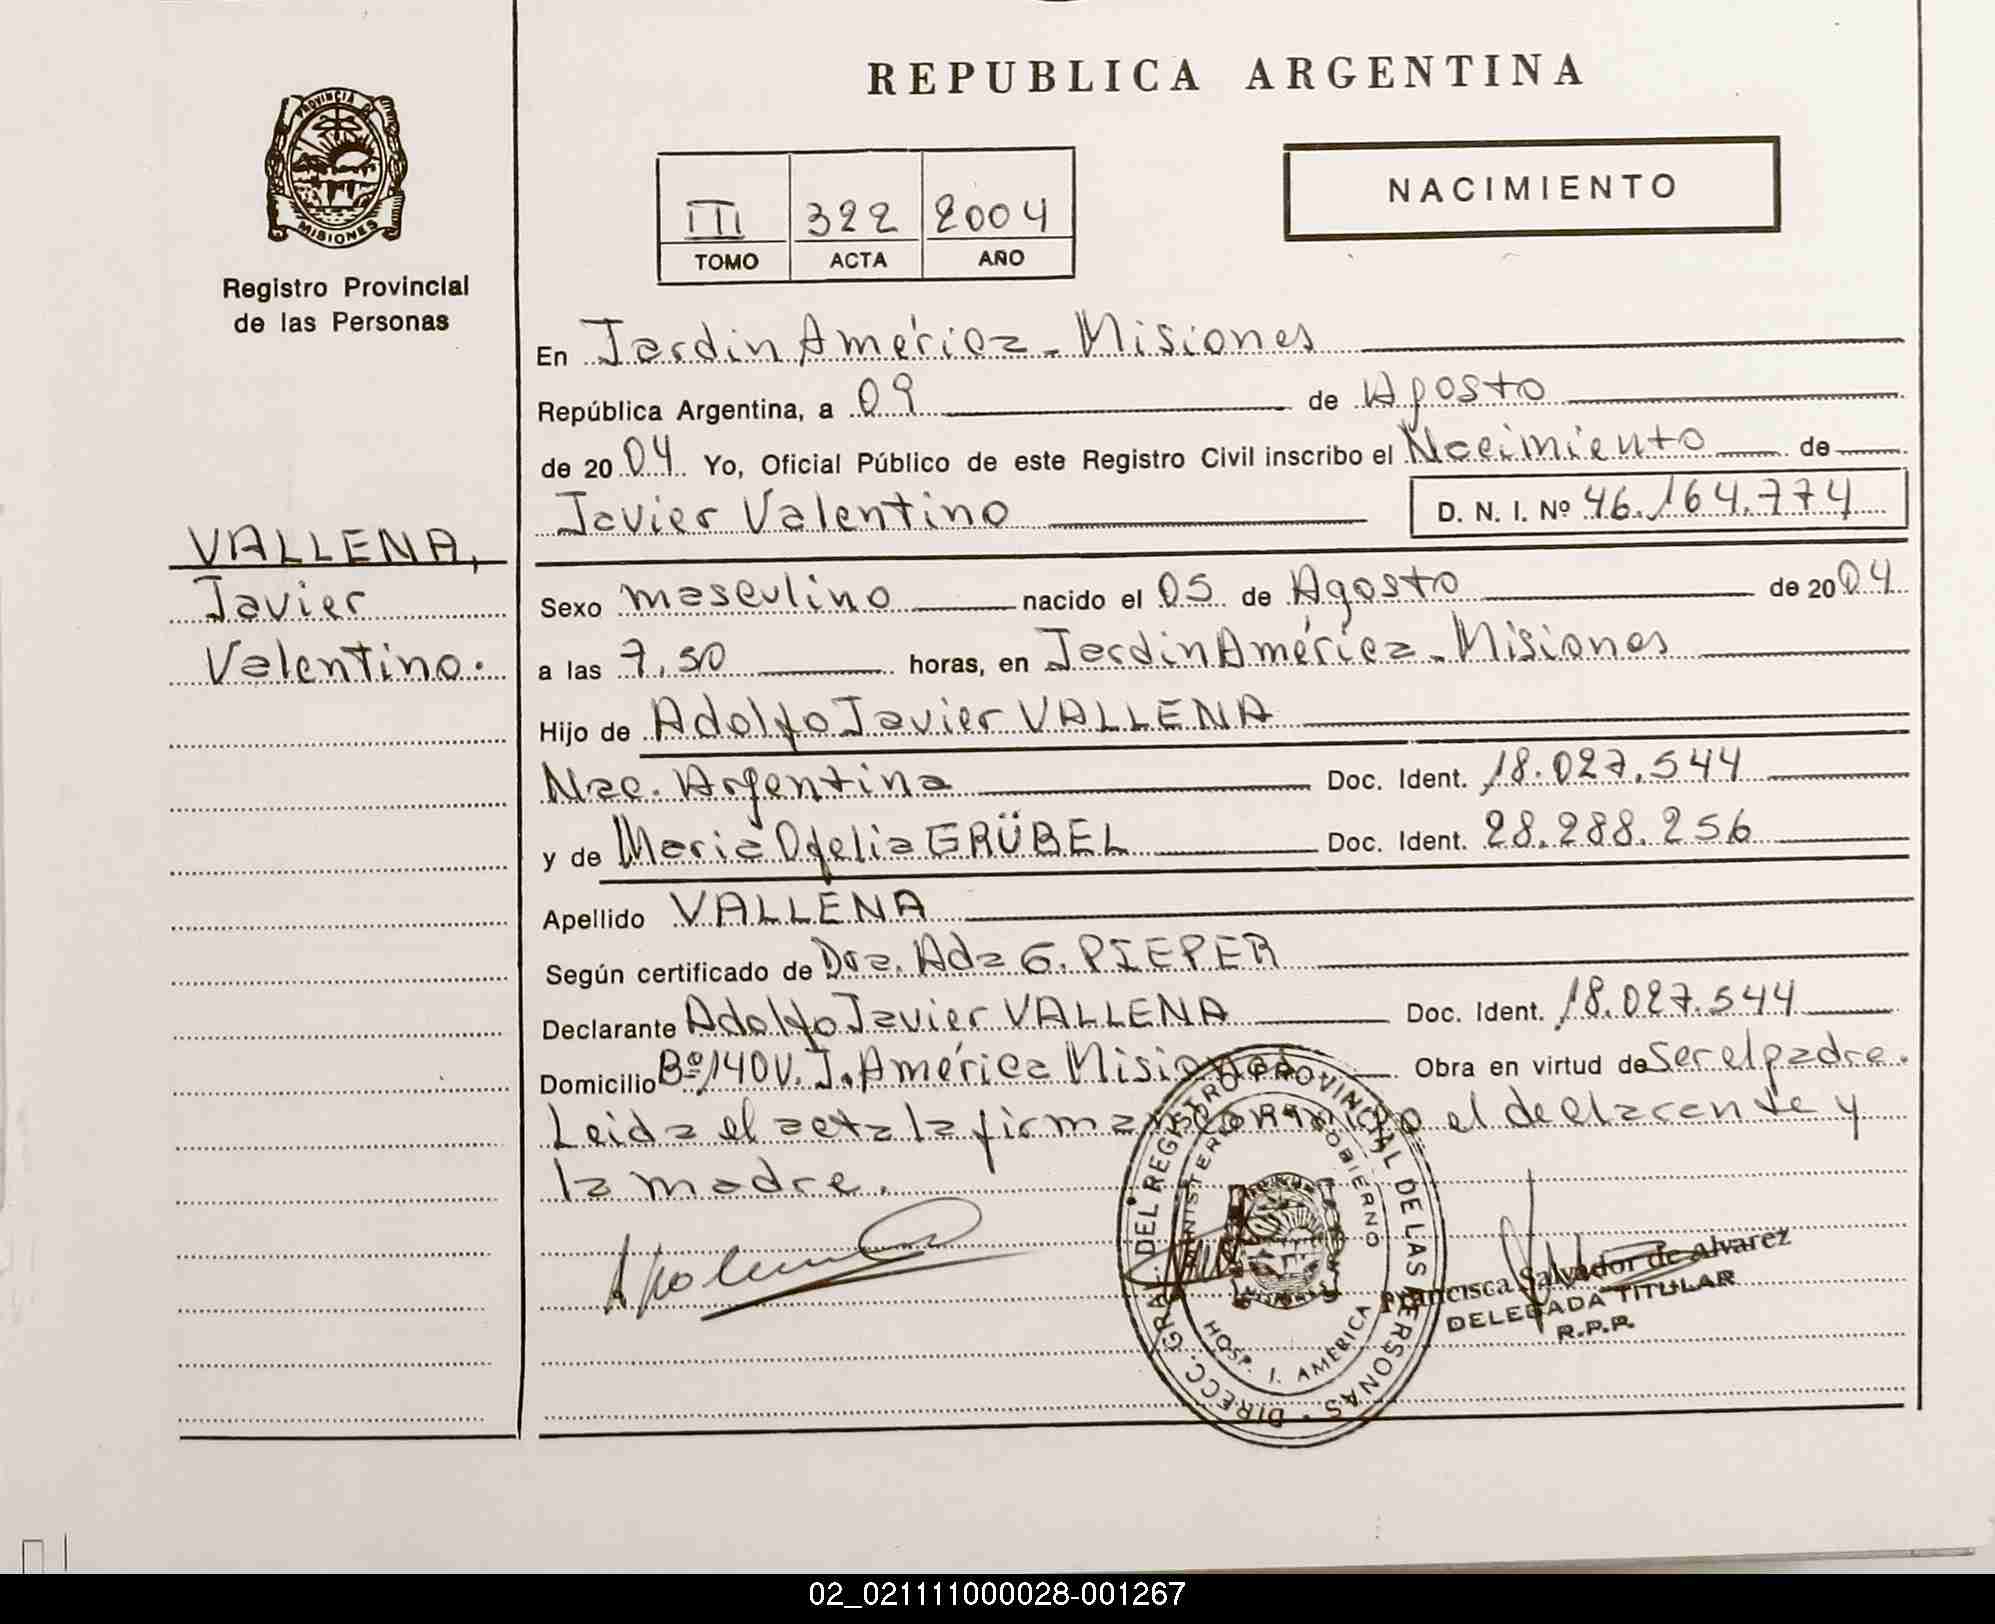 PROVINCIA DE
MISIONES
Registro Provincial
de las Personas
VALLENA,
Javier
Valentino.
REPUBLICA ARGENTINA
NACIMIENTO
III 322 2004
TOMO ACTA AÑO
En Jardin América - Misiones
República Argentina, a 09 de Agosto
de 2004 Yo, Oficial Público de este Registro Civil inscribo el Nacimiento de
Javier Valentino D. N. I. Nº 46.164.774
Sexo masculino nacido el 05 de Agosto de 2004
a las 7,50 horas, en Jardin América - Misiones
Hijo de Adolfo Javier VALLENA
Nac. Argentina Doc. Ident. 18.027.544
y de Maria Ofelia GRÜBEL Doc. Ident. 28.288.256
Apellido VALLENA
Según certificado de Dra. Ada G. PIEPER
Declarante Adolfo Javier VALLENA Doc. Ident. 18.027.544
Domicilio Bº 140 V. J. América Misiones Obra en virtud de Ser el padre.
Leida el acta la firman conmigo el declarante y
la madre.
DIRECC. GRAL. DEL REGISTRO PROVINCIAL DE LAS PERSONAS
MINISTERIO DE GOBIERNO
HOSP. J. AMERICA
Francisca Salvador de Alvarez
DELEGADA TITULAR
R.P.P.
02_021111000028-001267